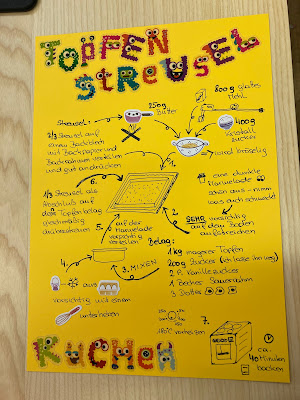 TOPFEN
STREUSEL
800g glattes
Mehl
250g
Butter
Streusel:
400g
Kristall
zucker
2/3 Streusel auf
einem Backblech
mit Backpapier und
Backrahmen verteilen
und gut andrücken
wird bröselig
1.
6.
eine dunkle
Marmelade
1/3 Streusel als
Abschluß auf
den Topfenbelag
gleichmäßig
2.
SEHR vorsichtig
auf dem Boden
aufstreichen
5.
auf der
Marmelade
vorsichtig
verteilen
Belag:
1 kg magerer Topfen
200g Zucker
2 P. Vanillezucker
1 Becher Sauerrahm
3 Dotter
4.
3. MIXEN
aus
vorsichtig mit einem
unterheben
180°C vorheizen
7.
ca.
40 Minuten
backen
KUCHEN